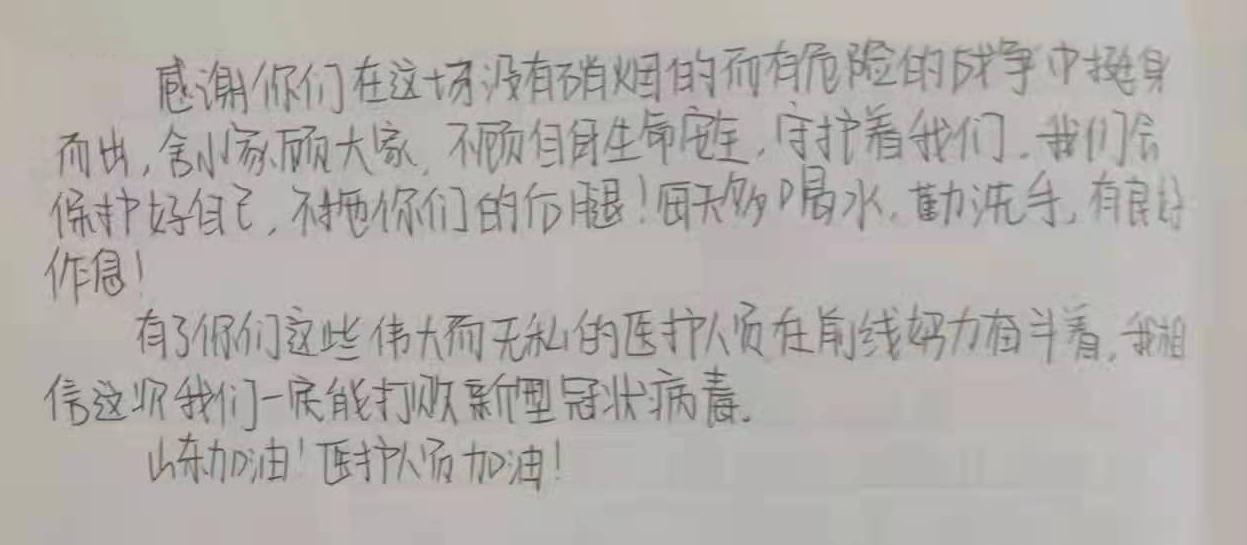 感谢你们在这场没有硝烟的而有危险的战争中挺身
而出,舍小家顾大家,不顾自身生命安全,守护着我们。我们会
保护好自己,不拖你们的后腿!每天多喝水,勤洗手,有良好
作息!
有了你们这些伟大而无私的医护人员在前线努力奋斗着,我相
信这次我们一定能打败新型冠状病毒。
山东加油!医护人员加油!